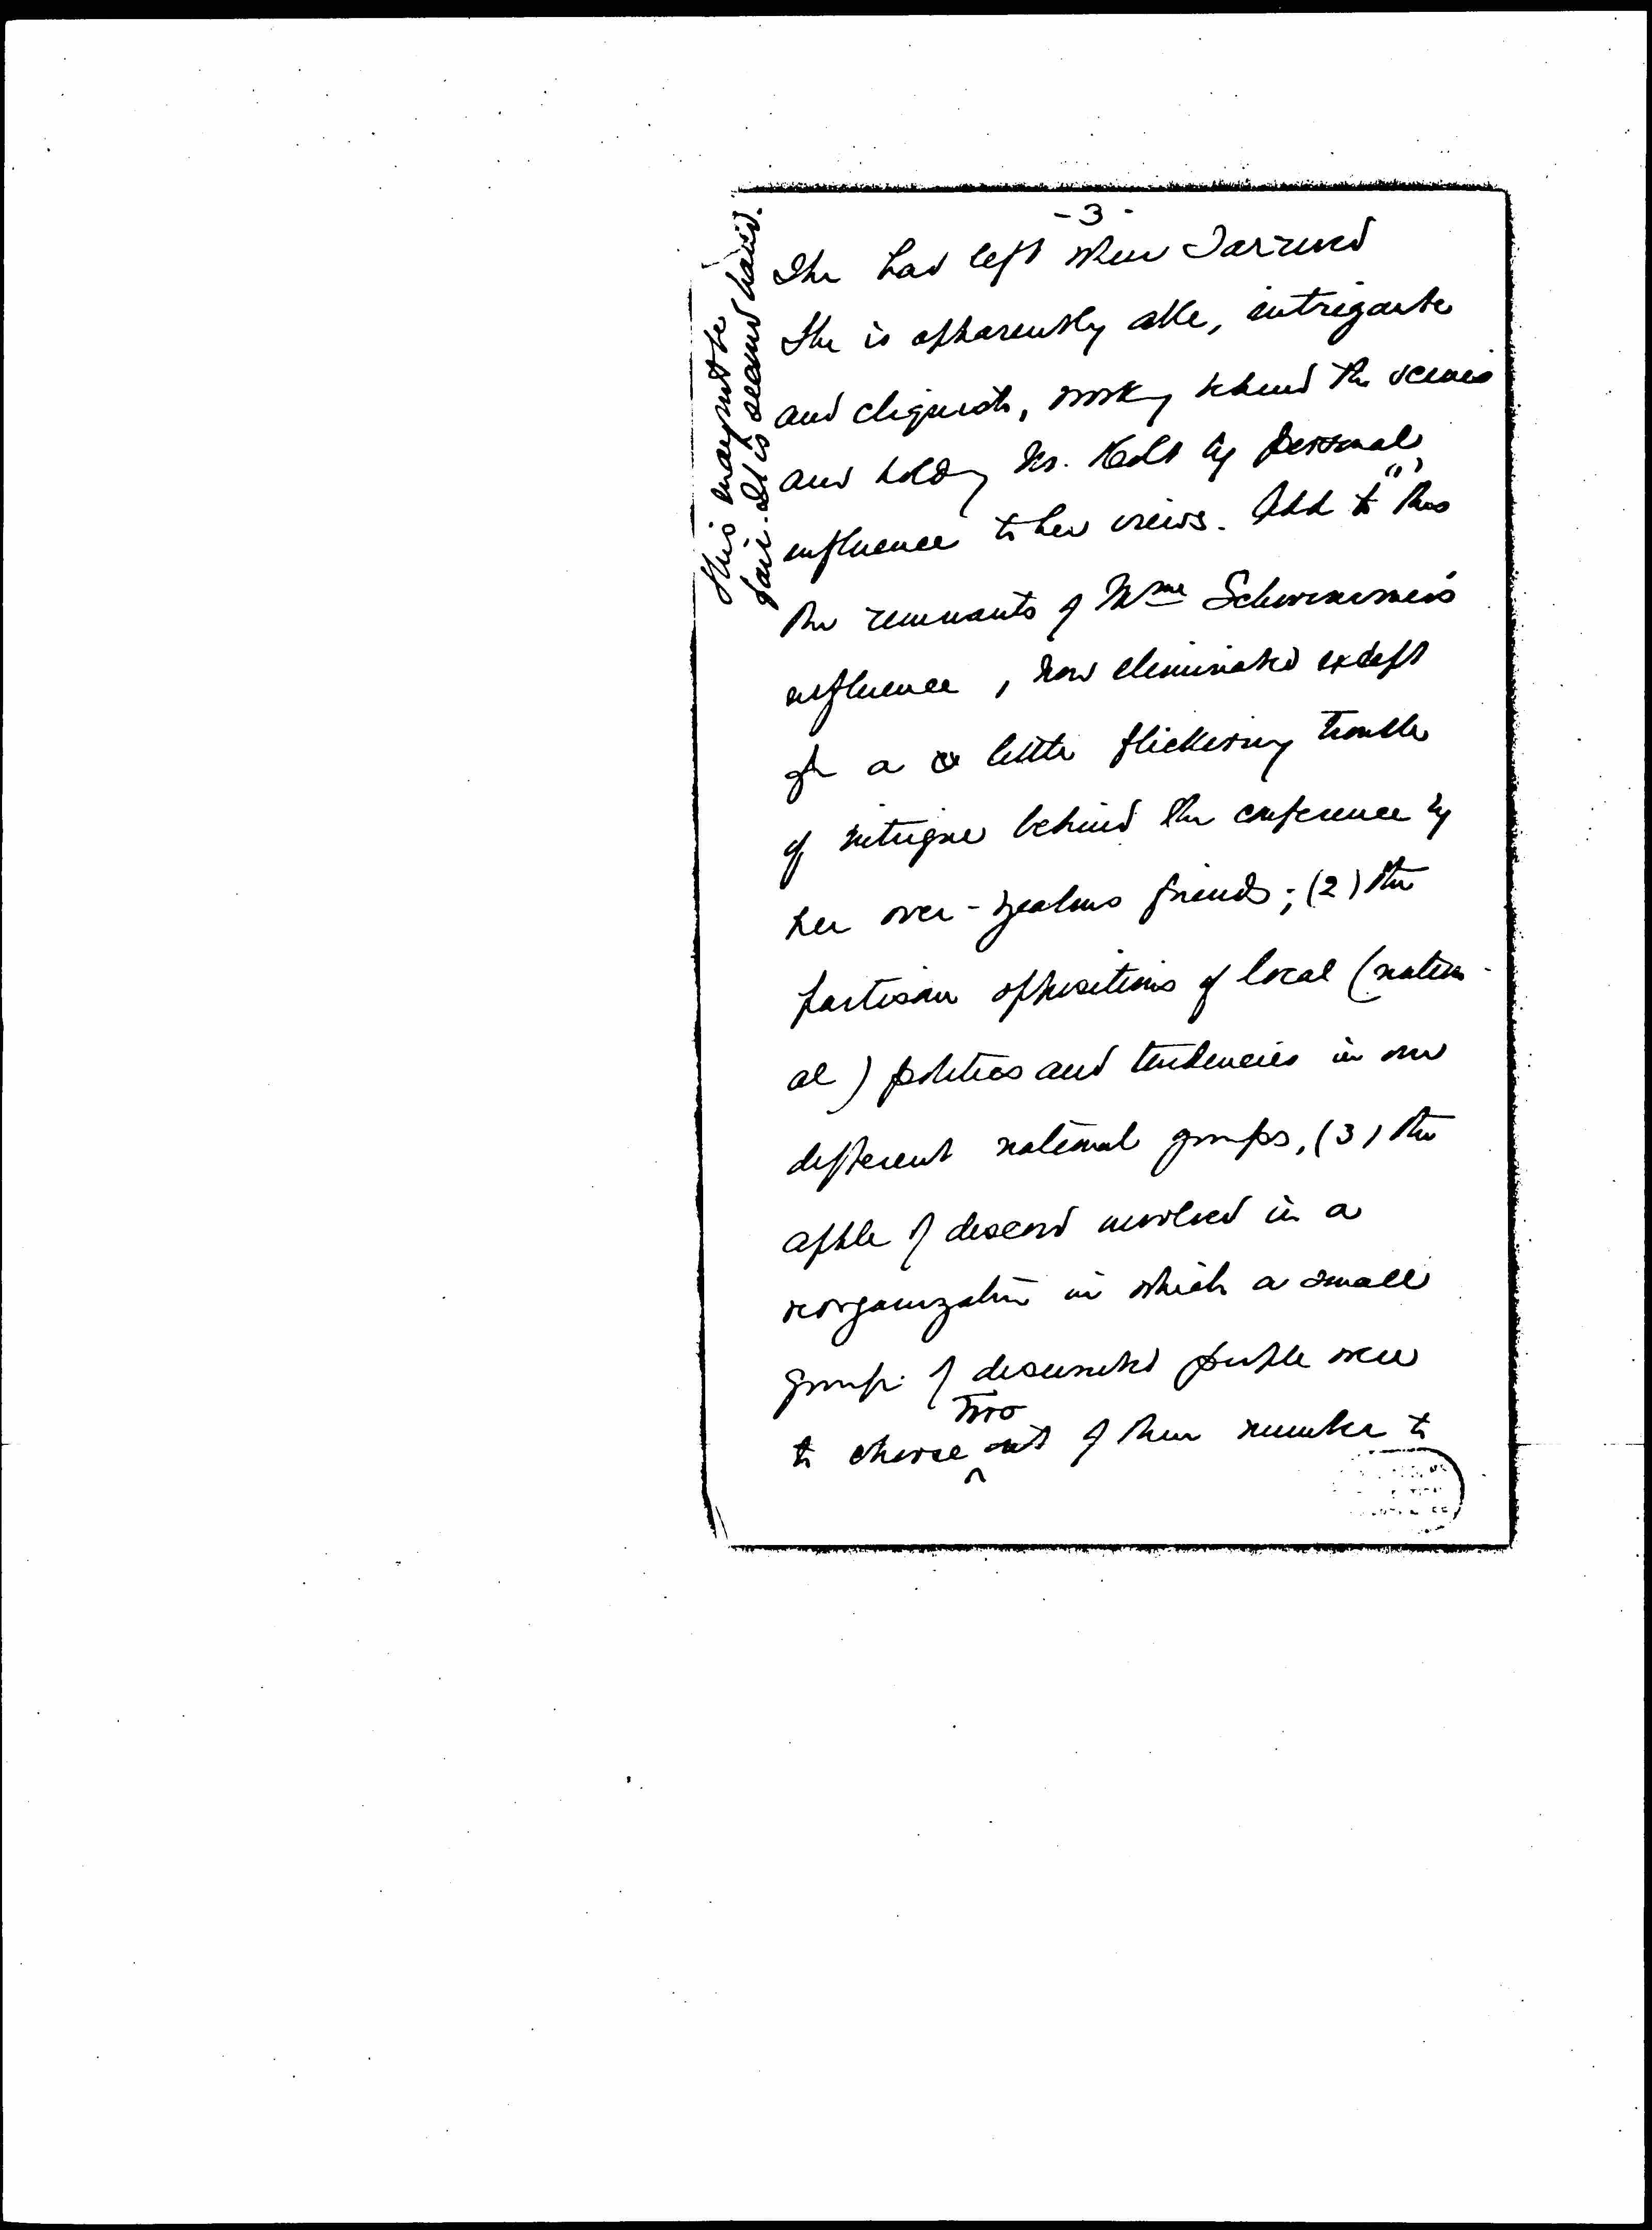 -3-
She had left when I arrived
She is apparently able, intrigante
and cliquish, working behind the scenes
and holding Mr. Holt by personal
influence to her views. Add to "1" this
the remnants of Mme Schwimmer's
influence, now eliminated except
for a little flickering trouble
of intrigue behind the conference by
her over-zealous friends; (2) the
partisan oppositions of local (nation-
al) politics and tendencies in our
different national groups, (3) the
apple of discord involved in a
reorganization in which a small
group of disunited people were
to choose two out of their number to
This may not be
fair. It is second hand.